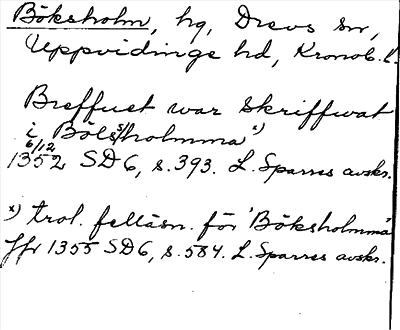 Böksholm, hg, Drevs sn,
Uppvidinge hd, Kronob. l.
Breffuet war skriffwat
i Böles/holmma x)
6/12
1352 SD 6, s. 393. L. Sparres avskr.
x) trol. felläsn. för 'Böksholmma'
Jfr 1355 SD 6, s. 584. L. Sparres avskr.